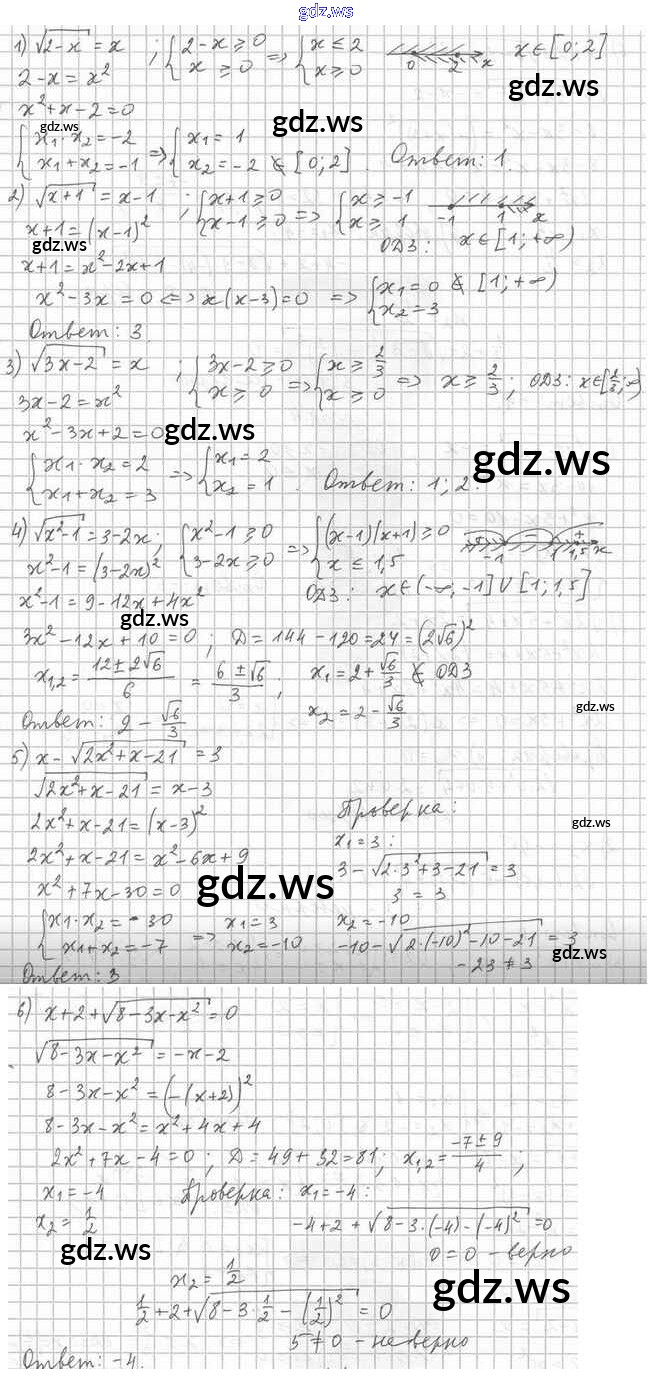 gdz.ws
1) √(2-x) = x ; {2-x ≥ 0, x ≥ 0 => {x ≤ 2, x ≥ 0 0 2 x x∈[0; 2]
2-x = x²
gdz.ws
x²+x-2=0
gdz.ws
gdz.ws
{x₁·x₂=-2, x₁+x₂=-1 => {x₁=1, x₂=-2 ∉ [0; 2]. Ответ: 1.
2) √(x+1) = x-1 ; {x+1 ≥ 0, x-1 ≥ 0 => {x ≥ -1, x ≥ 1 -1 1 x
x+1 = (x-1)² ОДЗ: x∈[1; +∞)
gdz.ws
x+1 = x²-2x+1
x²-3x = 0 <=> x(x-3)=0 => {x₁=0 ∉ [1; +∞), x₂=3
Ответ: 3.
3) √(3x-2) = x ; {3x-2 ≥ 0, x ≥ 0 => {x ≥ 2/3, x ≥ 0 => x ≥ 2/3; ОДЗ: x∈[2/3; ∞)
3x-2 = x²
x²-3x+2=0
gdz.ws
gdz.ws
{x₁·x₂=2, x₁+x₂=3 => {x₁=2, x₂=1. Ответ: 1; 2.
4) √(x²-1) = 3-2x; {x²-1 ≥ 0, 3-2x ≥ 0 => {(x-1)(x+1) ≥ 0, x ≤ 1,5 + - + -1 1 1,5 x
x²-1 = (3-2x)²
x²-1 = 9-12x+4x² ОДЗ: x∈(-∞, -1]∪[1; 1,5]
gdz.ws
3x²-12x+10=0; D=144-120=24=(2√6)²
x₁,₂ = (12±2√6)/6 = (6±√6)/3; x₁=2+√6/3 ∉ ОДЗ
x₂=2-√6/3
gdz.ws
Ответ: 2-√6/3
5) x-√(2x²+x-21) = 3
√(2x²+x-21) = x-3
2x²+x-21 = (x-3)² Проверка:
gdz.ws
2x²+x-21 = x²-6x+9 x₁=3:
x²+7x-30=0 3-√(2·3²+3-21) = 3
gdz.ws
3 = 3
{x₁·x₂=-30, x₁+x₂=-7 => x₁=3, x₂=-10 x₂=-10
-10-√(2·(-10)²-10-21) = 3
gdz.ws
-23 ≠ 3
Ответ: 3
6) x+2+√(8-3x-x²) = 0
√(8-3x-x²) = -x-2
8-3x-x² = (-(x+2))²
8-3x-x² = x²+4x+4
2x²+7x-4=0; D=49+32=81; x₁,₂ = (-7±9)/4;
x₁=-4 Проверка: x₁=-4:
x₂=1/2 -4+2+√(8-3·(-4)-(-4)²) = 0
gdz.ws
0=0 - верно
x₂=1/2
gdz.ws
1/2+2+√(8-3·1/2-(1/2)²) = 0
5≠0 - неверно
Ответ: -4.